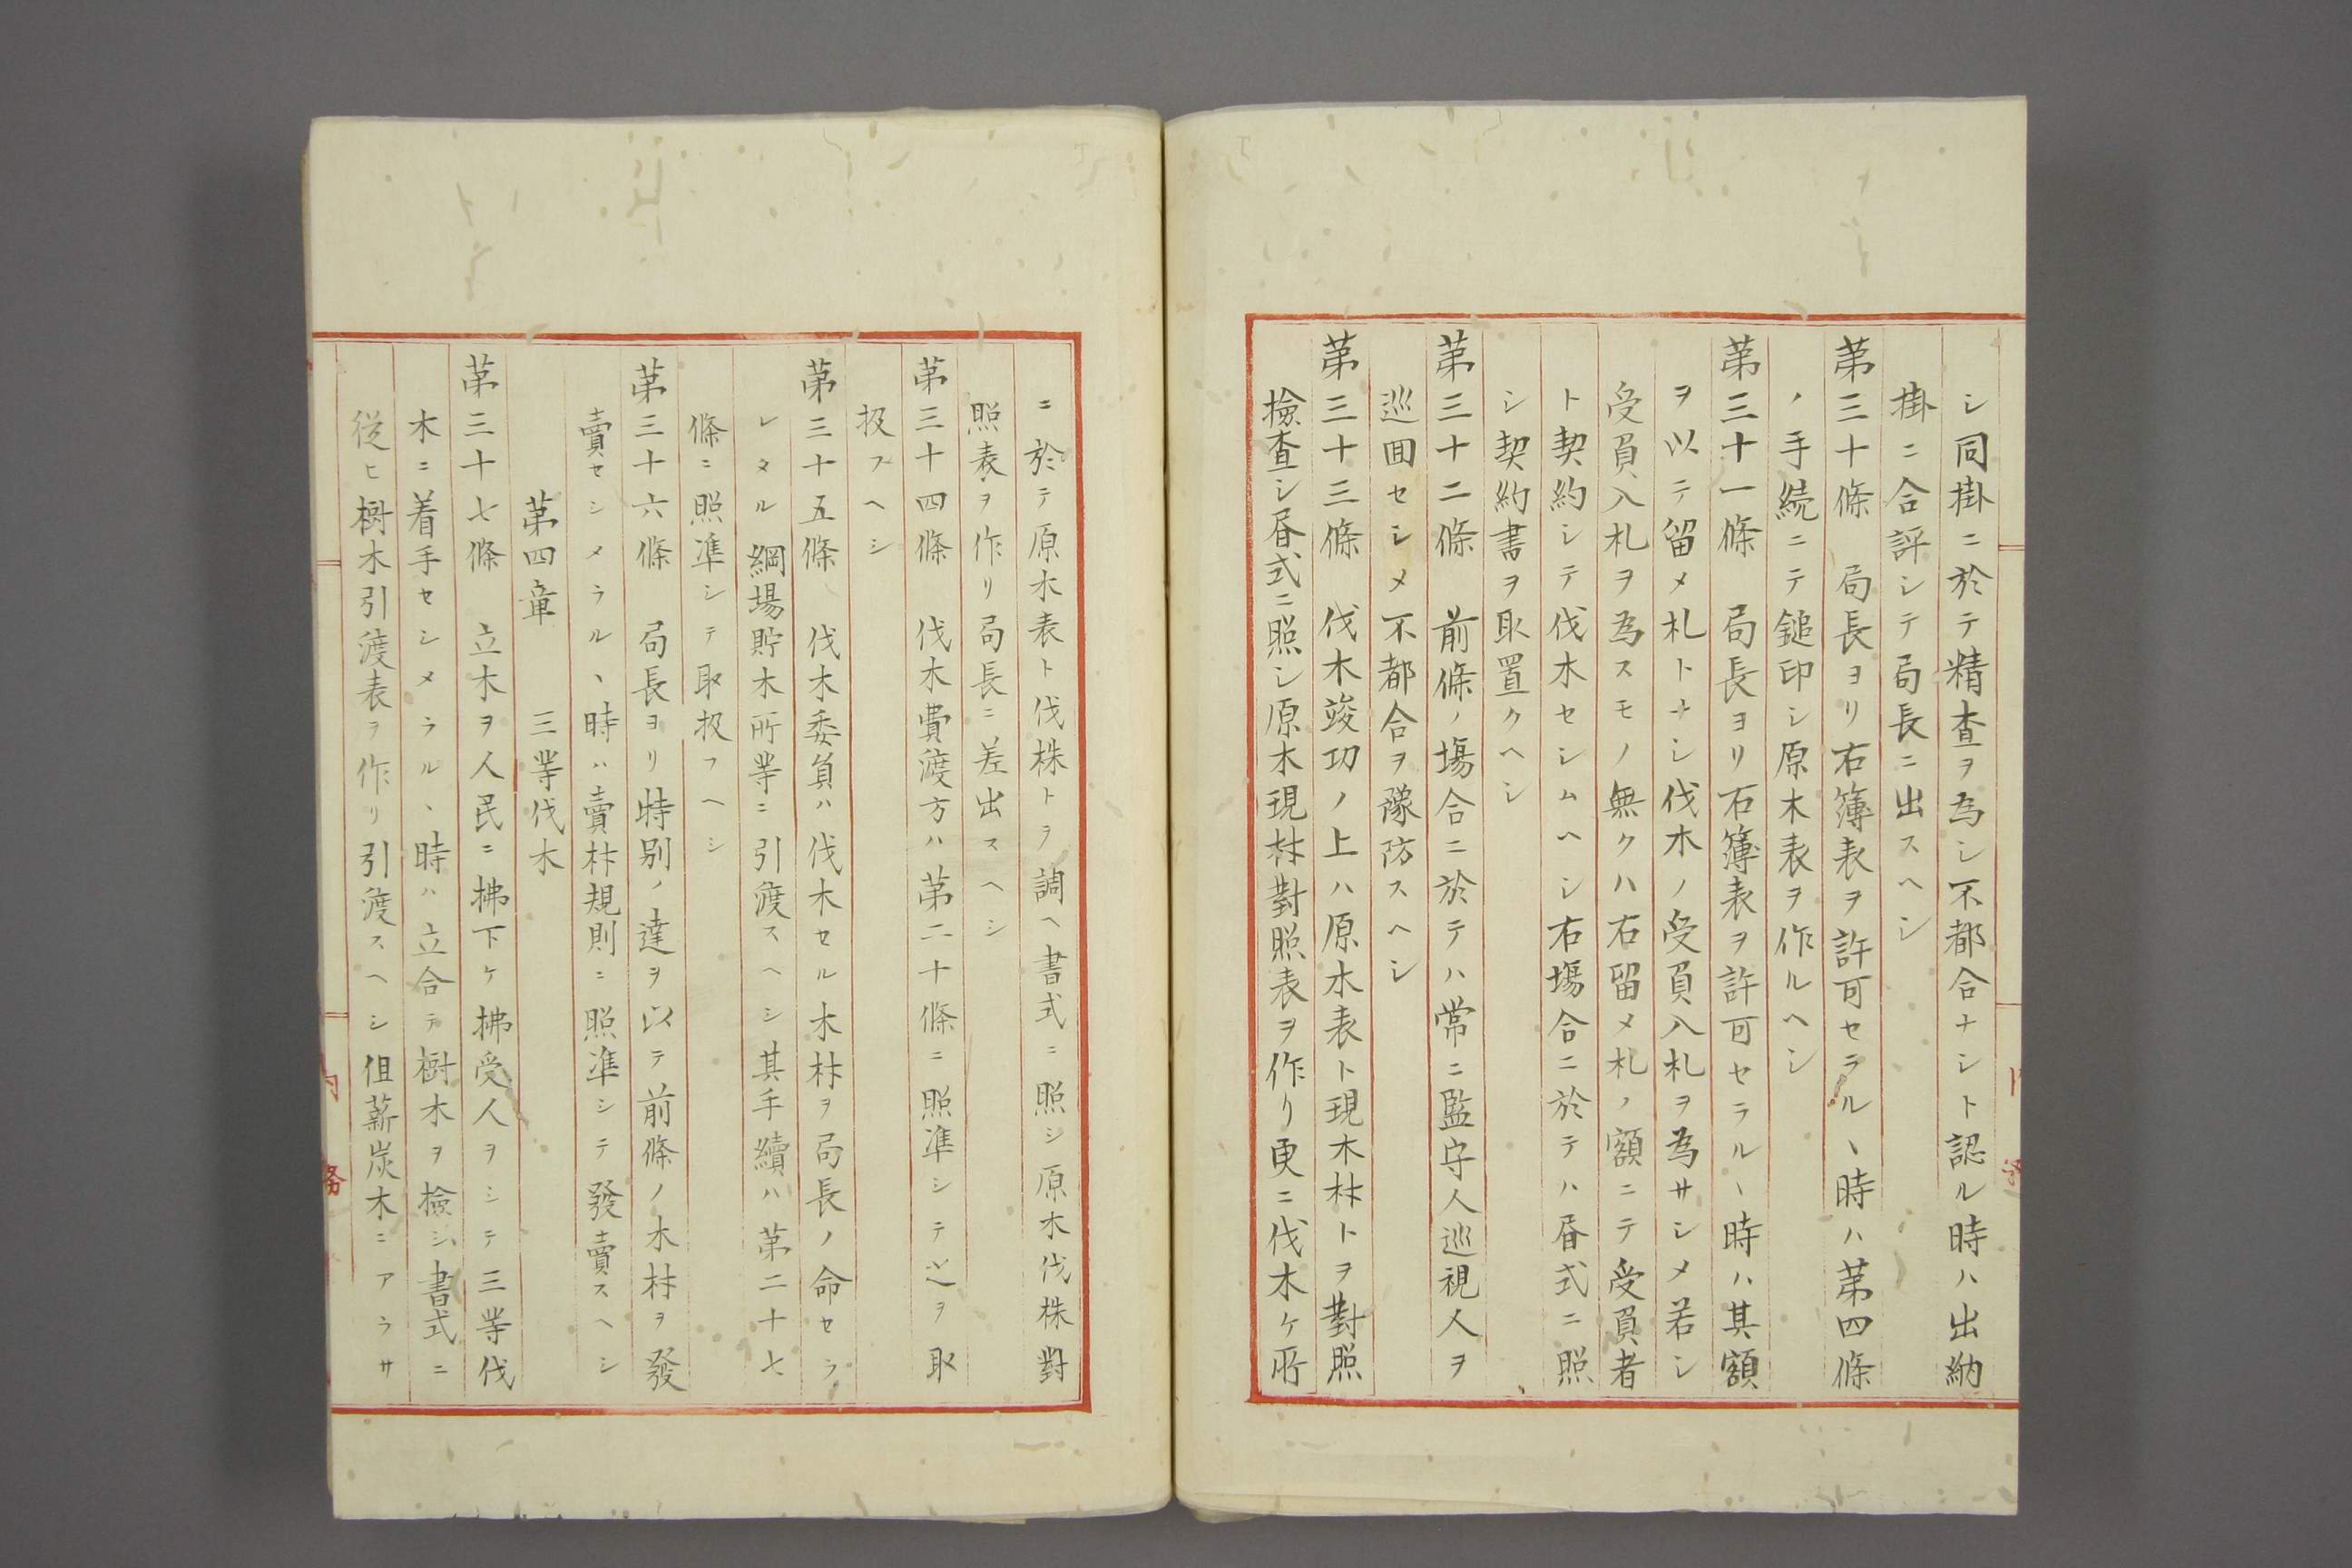 シ同掛ニ於テ精査ヲ為シ不都合ナシト認ル時ハ出納
掛ニ合評シテ局長ニ出スヘシ
第三十條　局長ヨリ右簿表ヲ許可セラル、時ハ第四條
ノ手続ニテ鎚印シ原木表ヲ作ルヘシ
第三十一條　局長ヨリ石簿表ヲ許可セラル、時ハ其額
ヲ以テ留メ札トナシ伐木ノ受負入札ヲ為サシメ若シ
受負入札ヲ為スモノ無クハ右留メ札ノ額ニテ受負者
ト契約シテ伐木セシムヘシ右塲合ニ於テハ㫪式ニ照
シ契約書ヲ取置クヘシ
第三十二條　前條ノ塲合ニ於テハ常ニ監守人巡視人ヲ
巡囬セシメ不都合ヲ豫防スヘシ
第三十三條　伐木竣功ノ上ハ原木表ト現木材トヲ對照
撿査シ㫪式ニ照シ原木現材對照表ヲ作リ更ニ伐木ケ所
ニ於テ原木表ト伐株トヲ調ヘ書式ニ照シ原木伐株對
照表ヲ作リ局長ニ差出スヘシ
第三十四條　伐木費渡方ハ第二十條ニ照準シテ之ヲ取
扱フヘシ
第三十五條　伐木委負ハ伐木セル木材ヲ局長ノ命セラ
レタル綱場貯木所等ニ引渡スヘシ其手續ハ第二十七
條ニ照準シテ取扱フヘシ
第三十六條　局長ヨリ特別ノ達ヲ以テ前條ノ木材ヲ發
賣セシメラル、時ハ賣材規則ニ照準シテ發賣スヘシ
第四章　三等伐木
第三十七條　立木ヲ人民ニ拂下ケ拂受人ヲシテ三等伐
木ニ着手セシメラル、時ハ立合テ樹木ヲ撿シ書式ニ
従ヒ樹木引渡表ヲ作リ引渡スヘシ但薪炭木ニアラサ
内
務